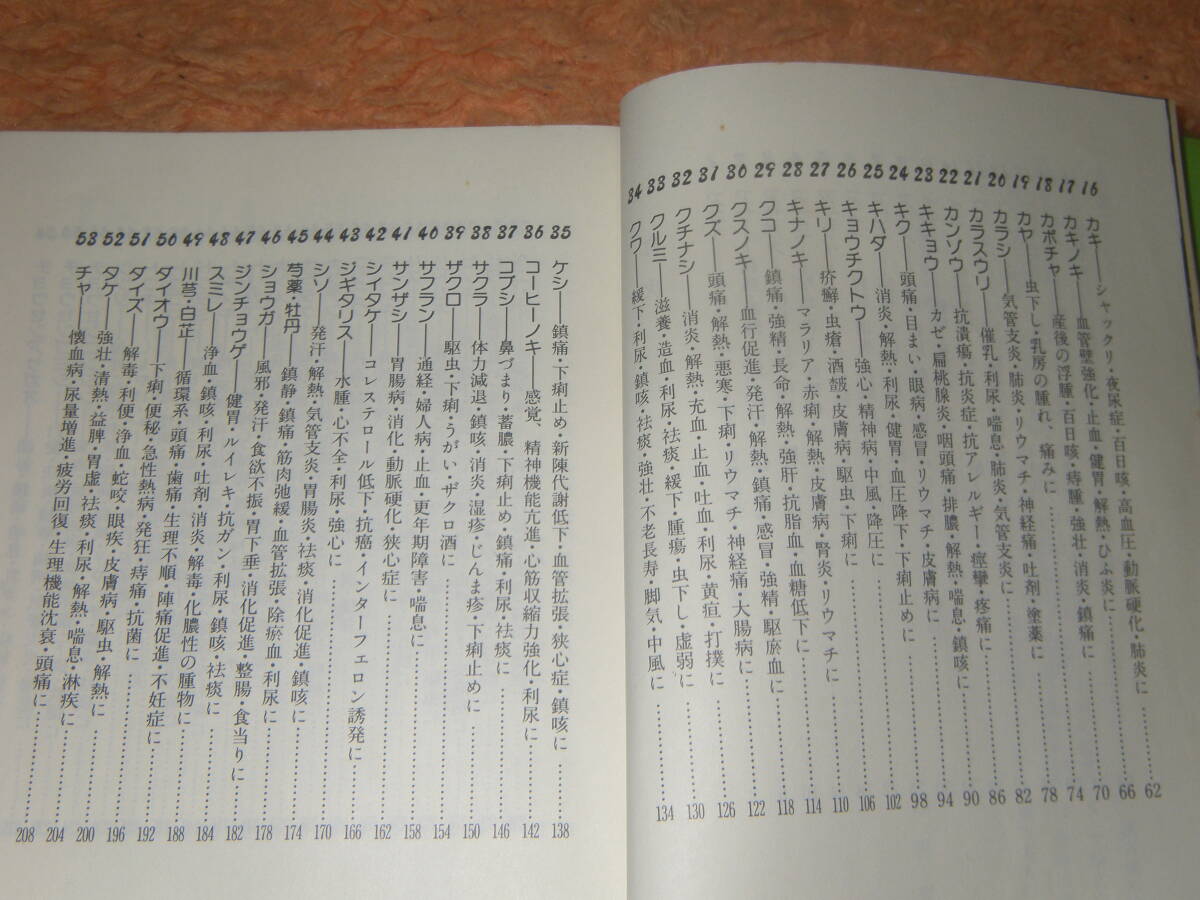 16 カキ——シャックリ・夜尿症・百日咳・高血圧・動脈硬化・肺炎に……62
17 カキノキ——血管壁強化・止血・健胃・解熱・ひふ炎に……66
18 カボチャ——産後の浮腫・百日咳・痔腫・強壮・消炎・鎮痛に……70
19 カヤ——虫下し・乳房の腫れ、痛みに……74
20 カラシ——気管支炎・肺炎・リウマチ・神経痛・吐剤・塗薬に……78
21 カラスウリ——催乳・利尿・喘息・肺炎・気管支炎に……82
22 カンゾウ——抗潰瘍・抗炎症・抗アレルギー・痙攣・疼痛に……86
23 キキョウ——カゼ・扁桃腺炎・咽頭痛・排膿・解熱・喘息・鎮咳に……90
24 キク——頭痛・目まい・眼病・感冒・リウマチ・皮膚病に……94
25 キハダ——消炎・解熱・利尿・健胃・血圧降下・下痢止めに……98
26 キョウチクトウ——強心・精神病・中風・降圧に……102
27 キリ——疥癬・虫瘡・酒皶・皮膚病・駆虫・下痢に……106
28 キナノキ——マラリア・赤痢・解熱・皮膚病・腎炎・リウマチに……110
29 クコ——鎮痛・強精・長命・解熱・強肝・抗脂血・血糖低下に……114
30 クスノキ——血行促進・発汗・解熱・鎮痛・感冒・強精・駆瘀血に……118
31 クズ——頭痛・解熱・悪寒・下痢・リウマチ・神経痛・大腸病に……122
32 クチナシ——消炎・解熱・充血・止血・吐血・利尿・黄疸・打撲に……126
33 クルミ——滋養・造血・利尿・祛痰・緩下・腫瘍・虫下し・虚弱に……130
34 クワ——緩下・利尿・鎮咳・祛痰・強壮・不老長寿・脚気・中風に……134
35 ケシ——鎮痛・下痢止め・新陳代謝低下・血管拡張・狭心症・鎮咳に……138
36 コーヒーノキ——感覚、精神機能亢進・心筋収縮力強化・利尿に……142
37 コブシ——鼻づまり・蓄膿・下痢止め・鎮痛・利尿・祛痰に……146
38 サクラ——体力減退・鎮咳・消炎・湿疹・じんま疹・下痢止めに……150
39 ザクロ——駆虫・下痢・うがい・ザクロ酒に……154
40 サフラン——通経・婦人病・止血・更年期障害・喘息に……158
41 サンザシ——胃腸病・消化・動脈硬化・狭心症に……162
42 シイタケ——コレステロール低下・抗癌・インターフェロン誘発に……166
43 ジギタリス——水腫・心不全・利尿・強心に……170
44 シソ——発汗・解熱・気管支炎・胃腸炎・祛痰・消化促進・鎮咳に……174
45 芍薬・牡丹——鎮静・鎮痛・筋肉弛緩・血管拡張・除瘀血・利尿に……178
46 ショウガ——風邪・発汗・食欲不振・胃下垂・消化促進・整腸・食当りに……182
47 ジンチョウゲ——健胃・ルイレキ・抗ガン・利尿・鎮咳・祛痰に……184
48 スミレ——浄血・鎮咳・利尿・吐剤・消炎・解毒・化膿性の腫物に……188
49 川芎・白芷——循環系・頭痛・歯痛・生理不順・陣痛促進・不妊症に……192
50 ダイオウ——下痢・便秘・急性熱病・発狂・痔痛・抗菌に……196
51 ダイズ——解毒・利便・浄血・蛇咬・眼疾・皮膚病・駆虫・解熱に……200
52 タケ——強壮・清熱・益脾・胃虚・祛痰・利尿・解熱・喘息・淋疾に……204
53 チャ——懐血病・尿量増進・疲労回復・生理機能沈衰・頭痛に……208